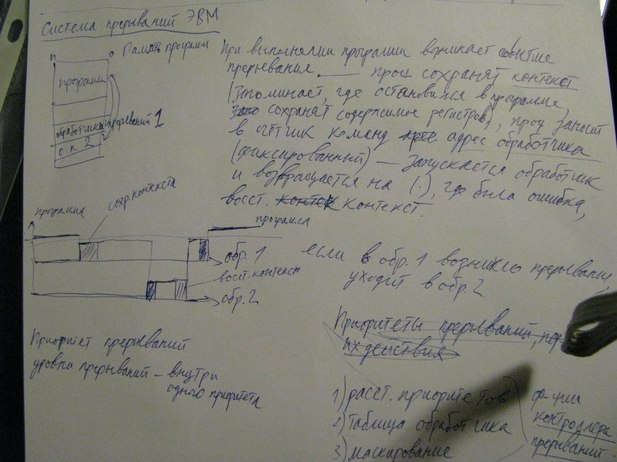 Система прерываний ЭВМ
Память программ
n
0
программа
обработчики прерываний 1
о.п. 2
При выполнении программы возникает событие
прерывания. — проц сохранят контекст
(запоминает, где остановился в программе,
сохранят содержимое регистров), проц заносит
в счётчик команд адрес обработчика
(фиксированный) — запускается обработчик
и возвращается на (.), где была ошибка,
восст. контекст.
программа
сохр контекста
программа
обр. 1
восст. контекст
обр. 2
если в обр. 1 возникло прерывание,
уходит в обр. 2
Приоритет прерываний
уровни прерываний – внутри
одного приоритета
Приоритеты прерываний,
их действия
1) расст. приоритетов
2) таблица обработчика
3) маскирование
ф-ции
контроллера
прерываний